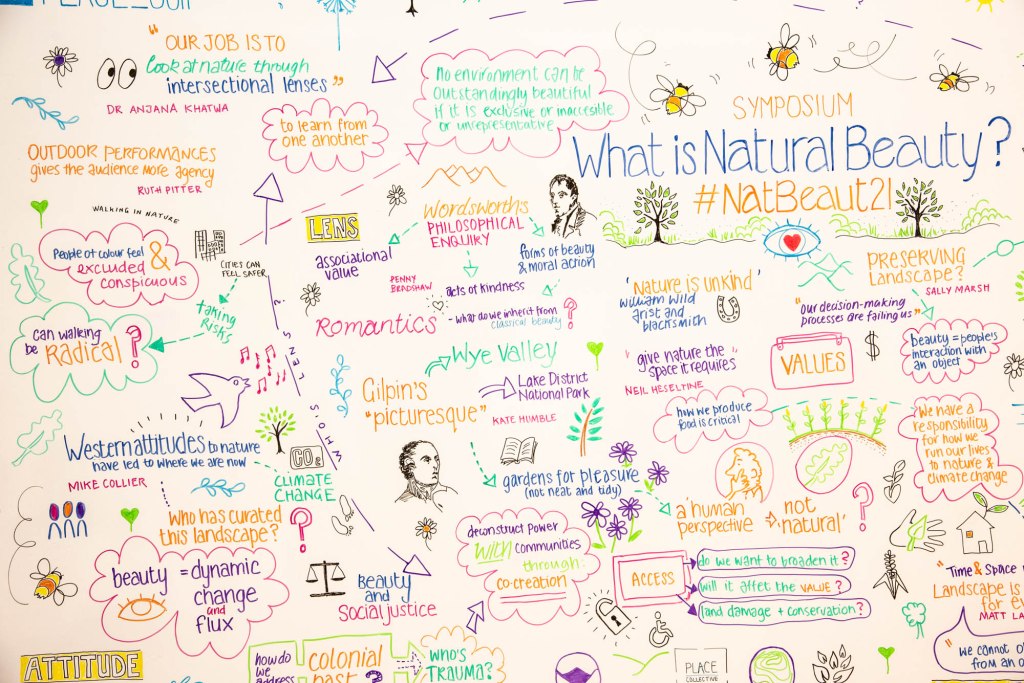 PLACE_
"OUR JOB IS TO
look at nature through
intersectional lenses"
DR ANJANA KHATWA
to learn from
one another
No environment can be
Outstandingly beautiful
if it is exclusive or inaccesible
or unrepresentative
SYMPOSIUM
What is Natural Beauty?
#NatBeaut21
OUTDOOR PERFORMANCES
gives the audience more agency
RUTH PITTER
WALKING IN NATURE
People of colour feel &
excluded
conspicuous
CITIES CAN
FEEL SAFER
taking
RISKS
can walking
be Radical?
LENS
associational
value
Wordsworth's
PHILOSOPHICAL
ENQUIRY
forms of beauty
& moral action
PENNY
BRADSHAW
acts of kindness
- what do we inherit from
classical beauty?
Romantics
WHOSE LENS?
Wye Valley
Gilpin's
"picturesque"
Lake District
National Park
KATE HUMBLE
'Nature is unkind'
William Wild
arist and
blacksmith
PRESERVING
Landscape?
SALLY MARSH
"our decision-making
processes are failing us"
$
beauty = people's
interaction with
an object
VALUES
"give nature the
space it requires"
NEIL HESELTINE
how we produce
food is critical
We have a
responsibility
for how we
run our lives
to nature &
climate change
Western attitudes to nature
have led to where we are now
MIKE COLLIER
CO2
CLIMATE
CHANGE
Who has curated
this landscape?
gardens for pleasure
(not neat and tidy)
a human
perspective
not
'natural'?
beauty = dynamic
change
and
flux
Beauty
and
Social justice
deconstruct power
With communities
through:
co-creation
ACCESS
do we want to broaden it?
will it affet the VALUE?
land damage + conservation?
"Time & Space
Landscape is
for
MATT
"we cannot
from an
ATTITUDE
how do
we
address
colonial
past?
who's
TRAUMA?
PLACE
COLLECTIVE